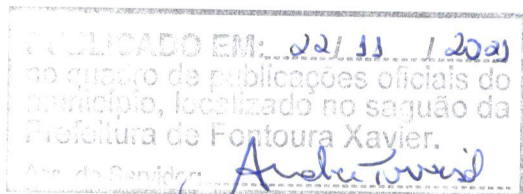 PUBLICADO EM: 22/11/2021
no quadro de publicações oficiais do
município, localizado no saguão da
Prefeitura de Fontoura Xavier.
Ass. do Servidor: